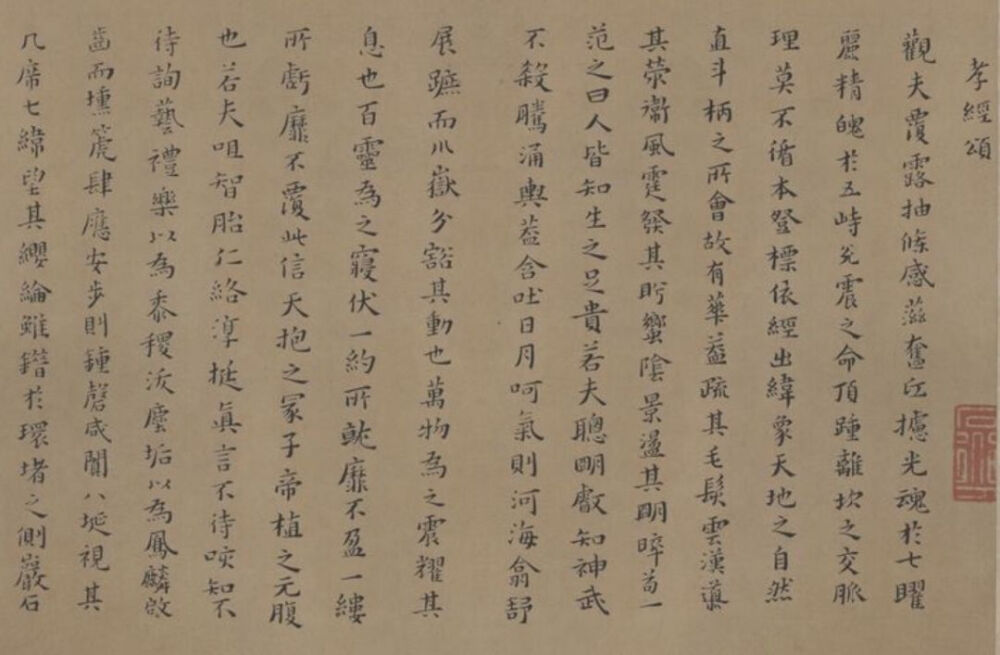 孝經頌
觀夫覆露抽條感滋奮㐌攄光魂於七曜
麗精魄於五峙兊震之命頂踵離坎之交脈
理莫不循本發標依經出緯象天地之自然
直斗柄之所會故有華葢疏其毛髮雲漢導
其荣衞風霆發其盱蠁陰景盪其明啐苟一
范之曰人皆知生之足貴若夫聰明叡知神武
不殺騰涌輿葢含吐日月呵氣則河海翕舒
展蹠而川嶽分豁其動也萬物為之震耀其
息也百靈為之寢伏一約所就靡不盈一縷
所虧靡不覆此信天抱之冢子帝植之元腹
也若夫咀智胎仁絡淳挻眞言不待唊知不
待詢藝禮樂以為黍稷沃塵垢以為鳳麟啟
齒而壎箎肆應安步則鍾磬咸聞八埏視其
几席七緯望其纓綸雖錯於環堵之側巖石